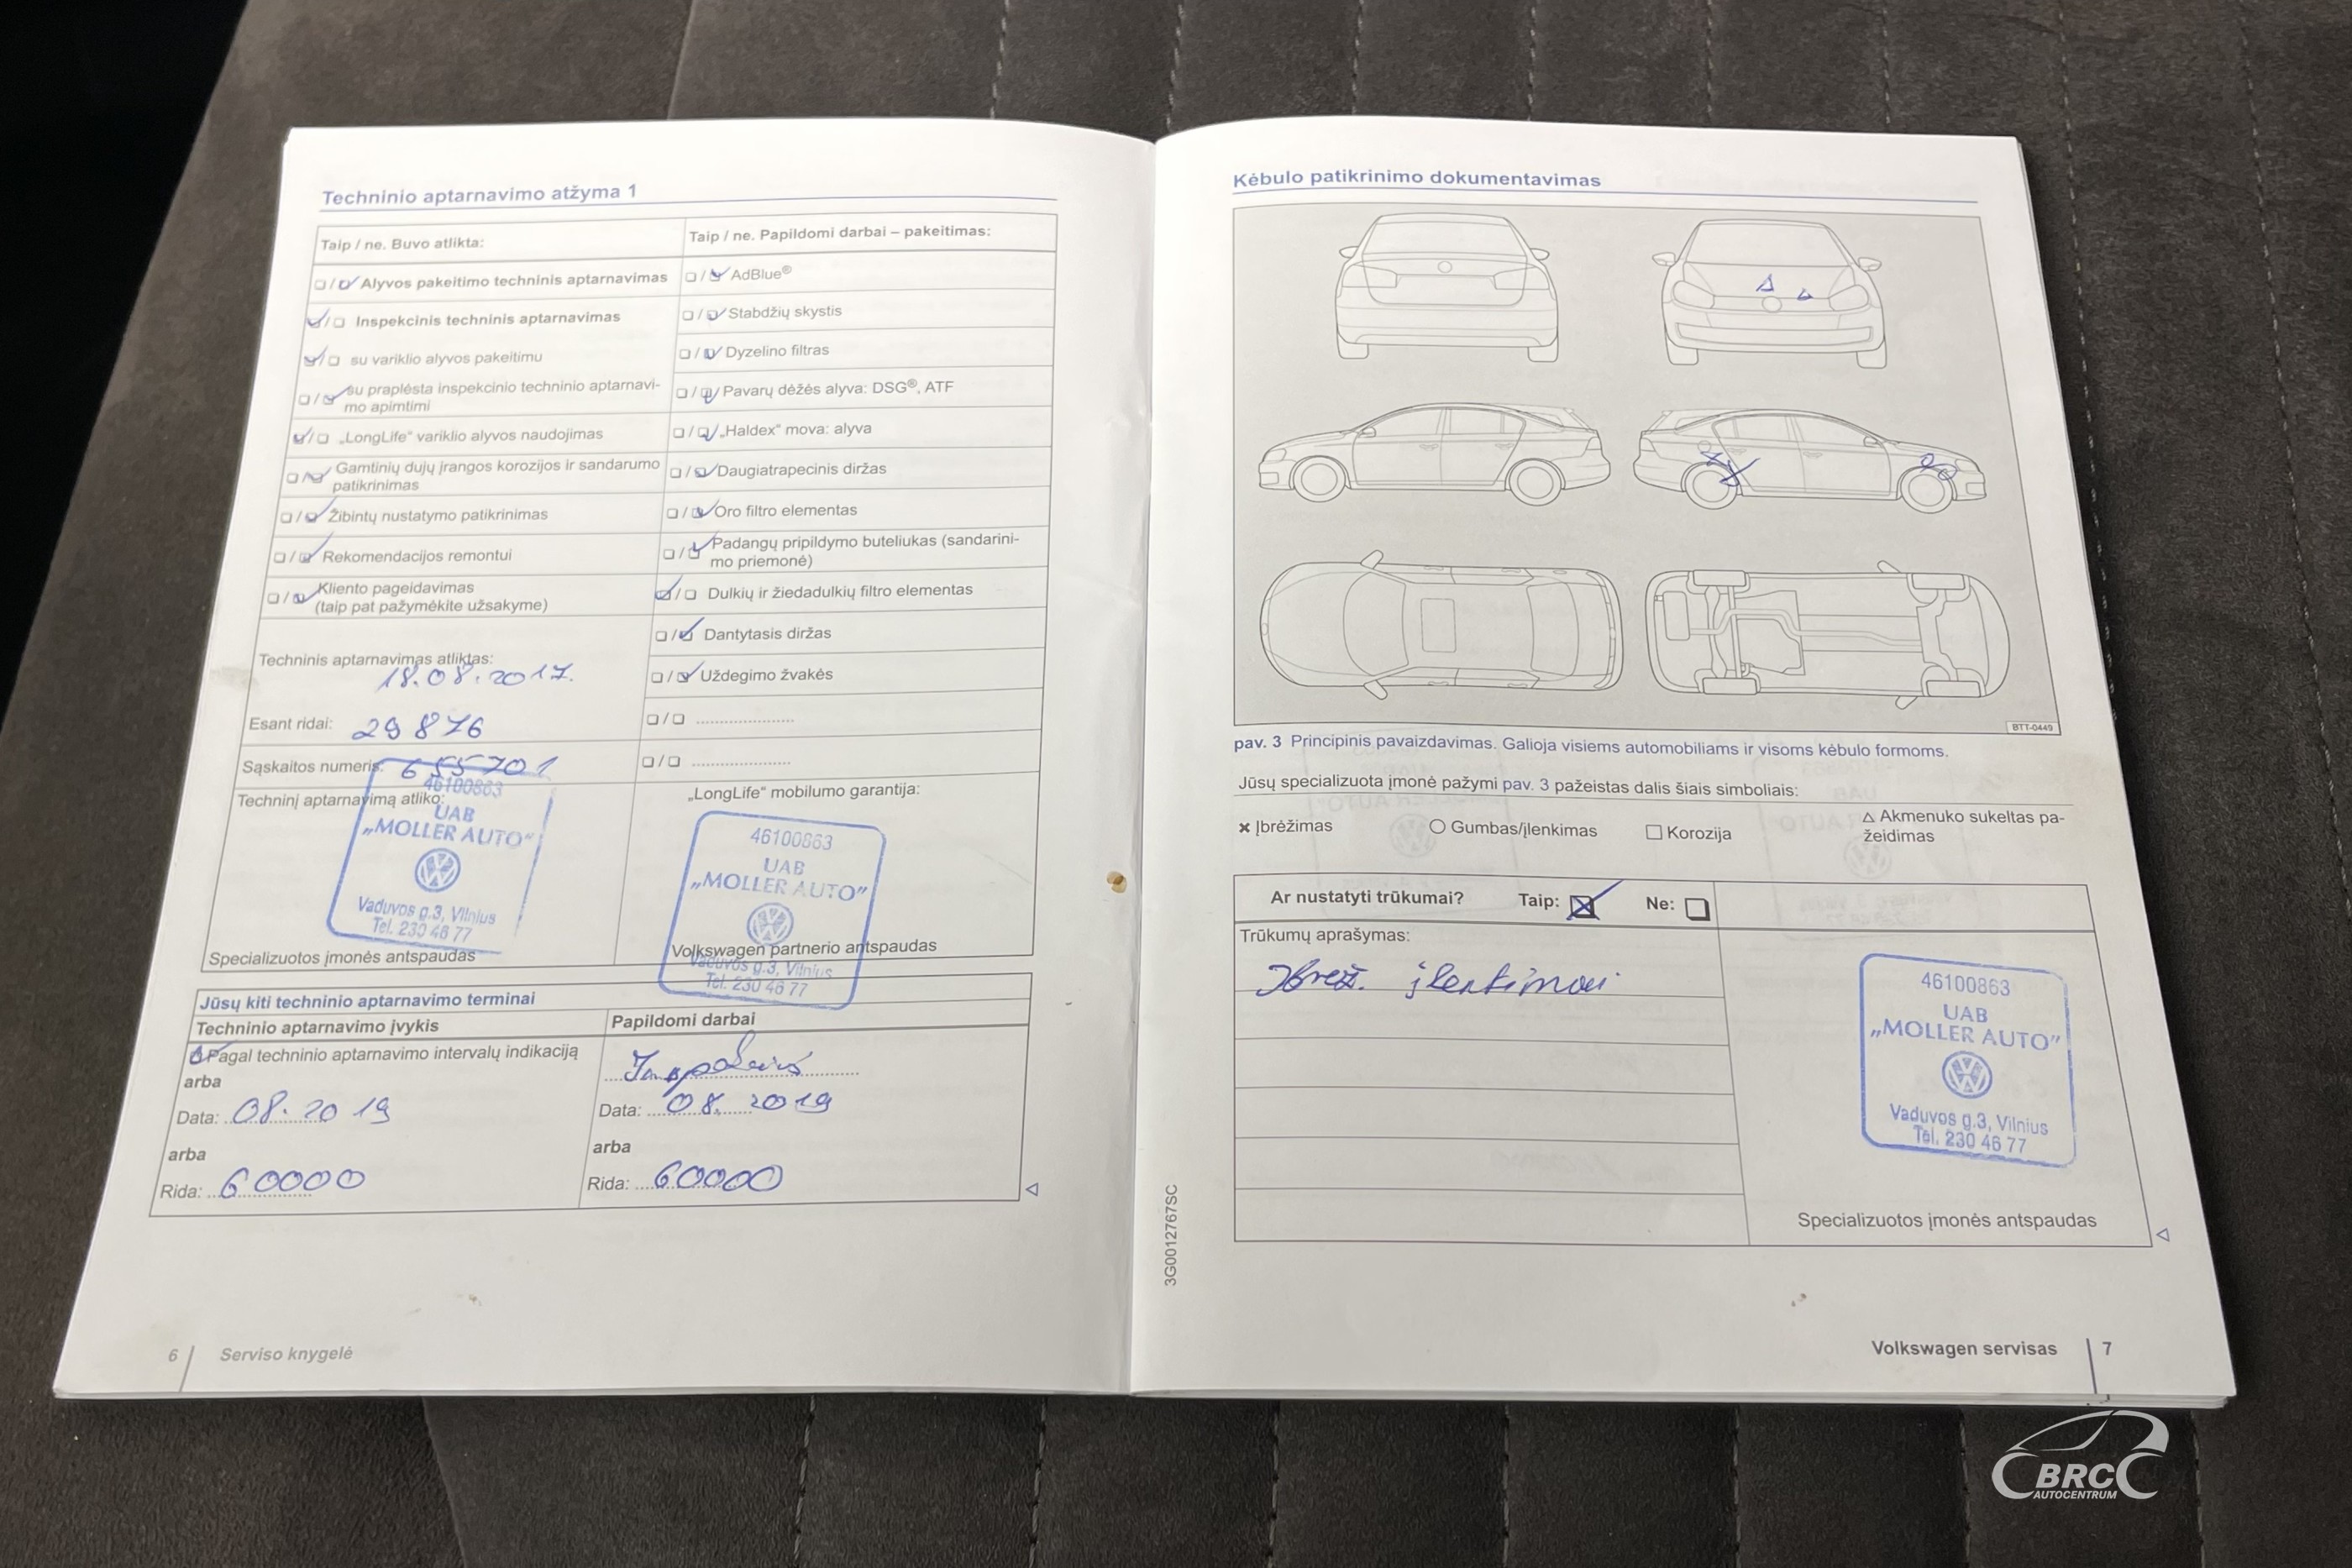 Techninio aptarnavimo atžyma 1
Taip / ne. Buvo atlikta:
Alyvos pakeitimo techninis aptarnavimas
Inspekcinis techninis aptarnavimas
su variklio alyvos pakeitimu
su praplėsta inspekcinio techninio aptarnavi-
mo apimtimi
„LongLife“ variklio alyvos naudojimas
Gamtinių dujų įrangos korozijos ir sandarumo
patikrinimas
Žibintų nustatymo patikrinimas
Rekomendacijos remontui
Kliento pageidavimas
(taip pat pažymėkite užsakyme)
Techninis aptarnavimas atliktas:
18.08.2017.
Esant ridai: 29876
Sąskaitos numeris: 655701
Techninį aptarnavimą atliko:
46100863
UAB
„MOLLER AUTO”
Vaduvos g.3, Vilnius
Tel. 230 46 77
Specializuotos įmonės antspaudas
Taip / ne. Papildomi darbai – pakeitimas:
AdBlue®
Stabdžių skystis
Dyzelino filtras
Pavarų dėžės alyva: DSG®, ATF
„Haldex“ mova: alyva
Daugiatrapecinis diržas
Oro filtro elementas
Padangų pripildymo buteliukas (sandarini-
mo priemonė)
Dulkių ir žiedadulkių filtro elementas
Dantytasis diržas
Uždegimo žvakės
„LongLife“ mobilumo garantija:
46100863
UAB
„MOLLER AUTO”
Volkswagen partnerio antspaudas
Vaduvos g.3, Vilnius
Tel. 230 46 77
Jūsų kiti techninio aptarnavimo terminai
Techninio aptarnavimo įvykis
Pagal techninio aptarnavimo intervalų indikaciją
arba
Data: 08.2019
arba
Rida: 60000
Papildomi darbai
Data: 08.2019
arba
Rida: 60000
6 Serviso knygelė
Kėbulo patikrinimo dokumentavimas
BTT-0449
pav. 3 Principinis pavaizdavimas. Galioja visiems automobiliams ir visoms kėbulo formoms.
Jūsų specializuota įmonė pažymi pav. 3 pažeistas dalis šiais simboliais:
× Įbrėžimas
○ Gumbas/įlenkimas
□ Korozija
△ Akmenuko sukeltas pa-
žeidimas
Ar nustatyti trūkumai? Taip: Ne:
Trūkumų aprašymas:
Įbrėž. įlenkimai
46100863
UAB
„MOLLER AUTO”
Vaduvos g.3, Vilnius
Tel. 230 46 77
Specializuotos įmonės antspaudas
3G0012767SC
Volkswagen servisas 7
BRC
AUTOCENTRUM